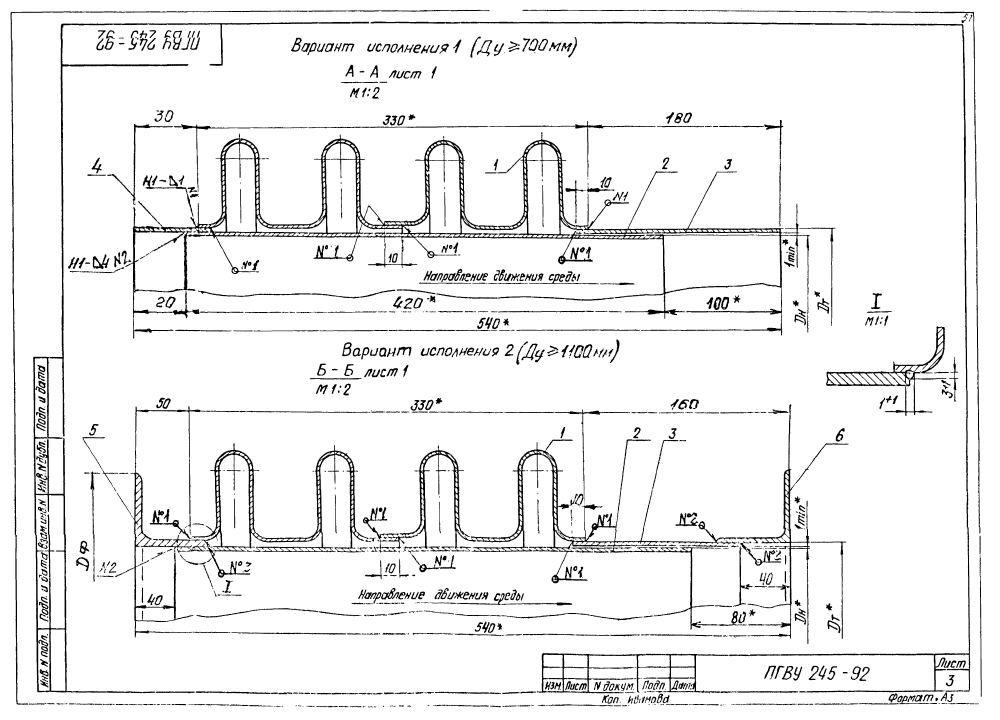 51
ПГВУ 245-92
Вариант исполнения 1 (Ду ≥ 700 мм)
А - А лист 1
М1:2
30
330*
180
4
Н1-⊿1
1
10
2
3
N1
Н1-⊿4 N2
N°1
N°1
10
N°1
N°1
Направление движения среды
1min*
Dн*
Dт*
20
420*
100*
540*
I
М1:1
3+1
1+1
Вариант исполнения 2 (Ду ≥ 1100 мм)
Б - Б лист 1
М1:2
50
330*
160
5
1
2
3
6
DФ
N°1
N°1
10
N°1
N°2
1min*
N2
N°3
I
10
N°1
N°1
N°2
40
40
Направление движения среды
80*
Dн*
Dт*
540*
Инв. N подл.
Подп. и дата
Взам. инв. N
Инв. N дубл.
Подп. и дата
Изм.
Лист
N докум.
Подп.
Дата
ПГВУ 245-92
Лист
3
Коп. Иванова
Формат. А3